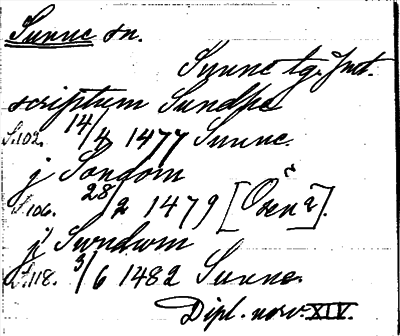 Sunne sn.
Sunne tg. Jmt.
scriptum Sundhe
S.102. 14/4 1477 Sunne.
j Sondom
S.106. 28/2 1479 [Osen?].
j Swndwm
S.118. 3/6 1482 Sunne.
Dipl. norv. XIV.